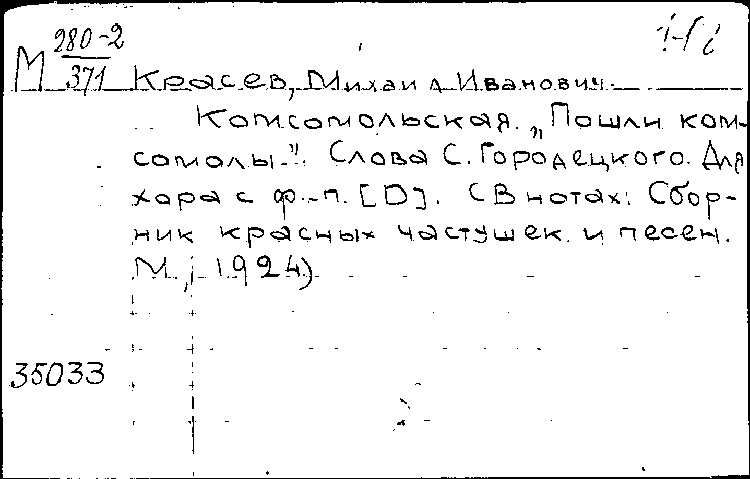 М 280-2/371 Красев, Михаил Иванович.
Комсомольская. „Пошли ком-
сомолы". Слова С. Городецкого. Для
хора с ф.-п. [D]. (В нотах: Сбор-
ник красных частушек и песен.
М., 1924)
35033